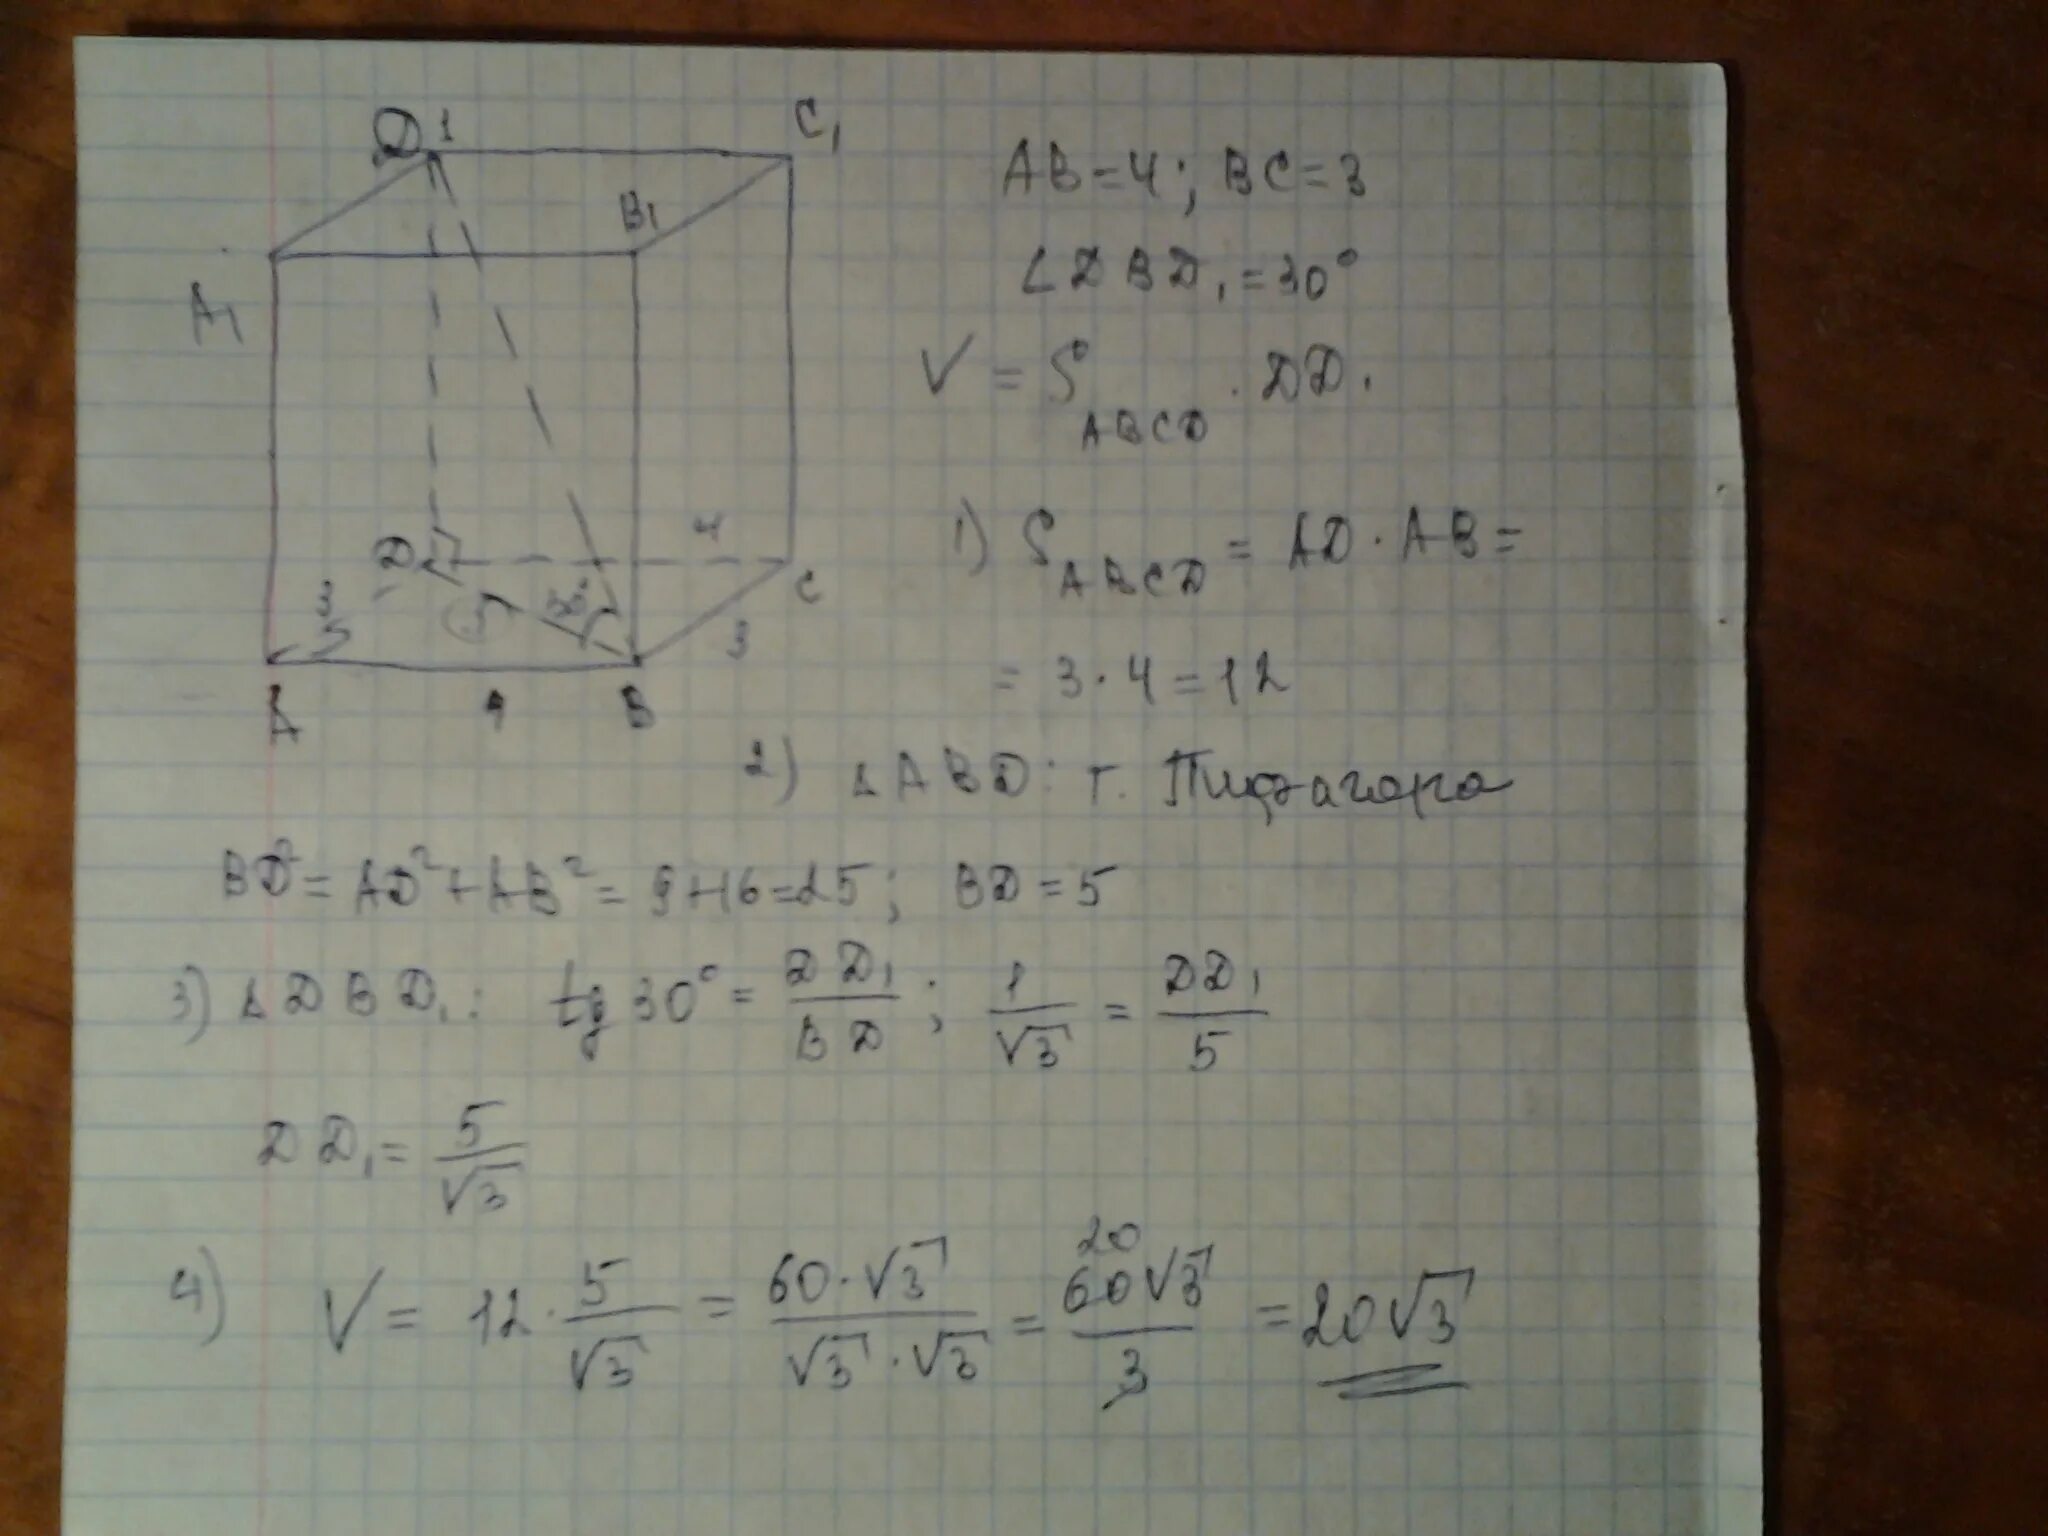 D1
C1
B1
A1
D
C
A
B
4
3
3
4
AB=4; BC=3
∠DBD1=30°
V = S ABCD · DD1
1) S ABCD = AD · AB =
= 3 · 4 = 12
2) △ABD: т. Пифагора
BD² = AD² + AB² = 9+16=25; BD = 5
3) △DBD1: tg 30° = DD1/BD; 1/√3 = DD1/5
DD1 = 5/√3
4) V = 12 · 5/√3 = 60·√3/√3·√3 = 60√3/3 = 20√3
20